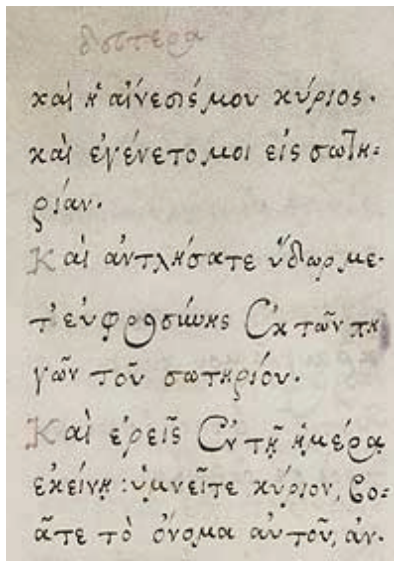 δευτέρα
καὶ ἡ αἴνεσίς μου κύριος.
καὶ ἐγένετο μοι εἰς σωτη-
ρίαν.
Καὶ ἀντλήσατε ὕδωρ με-
τ' εὐφροσύνης ἐκ τῶν πη
γῶν τοῦ σωτηρίου.
Καὶ ἐρεῖς ἐν τῇ ἡμέρᾳ
ἐκείνῃ: ὑμνεῖτε κύριον, βο-
ᾶτε τὸ ὄνομα αὐτοῦ, ἀν-